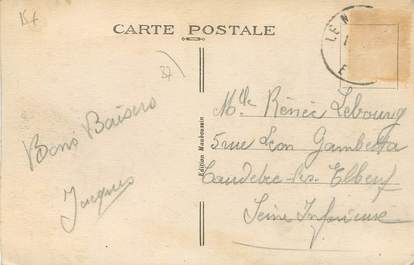 15f
CARTE POSTALE
LE N
E
37
Bons Baisers
Jacques
Edition Mauboussin
Mlle Rénée Lebourg
5 rue Léon Gambetta
Caudebec-les-Elbeuf
Seine Inférieure